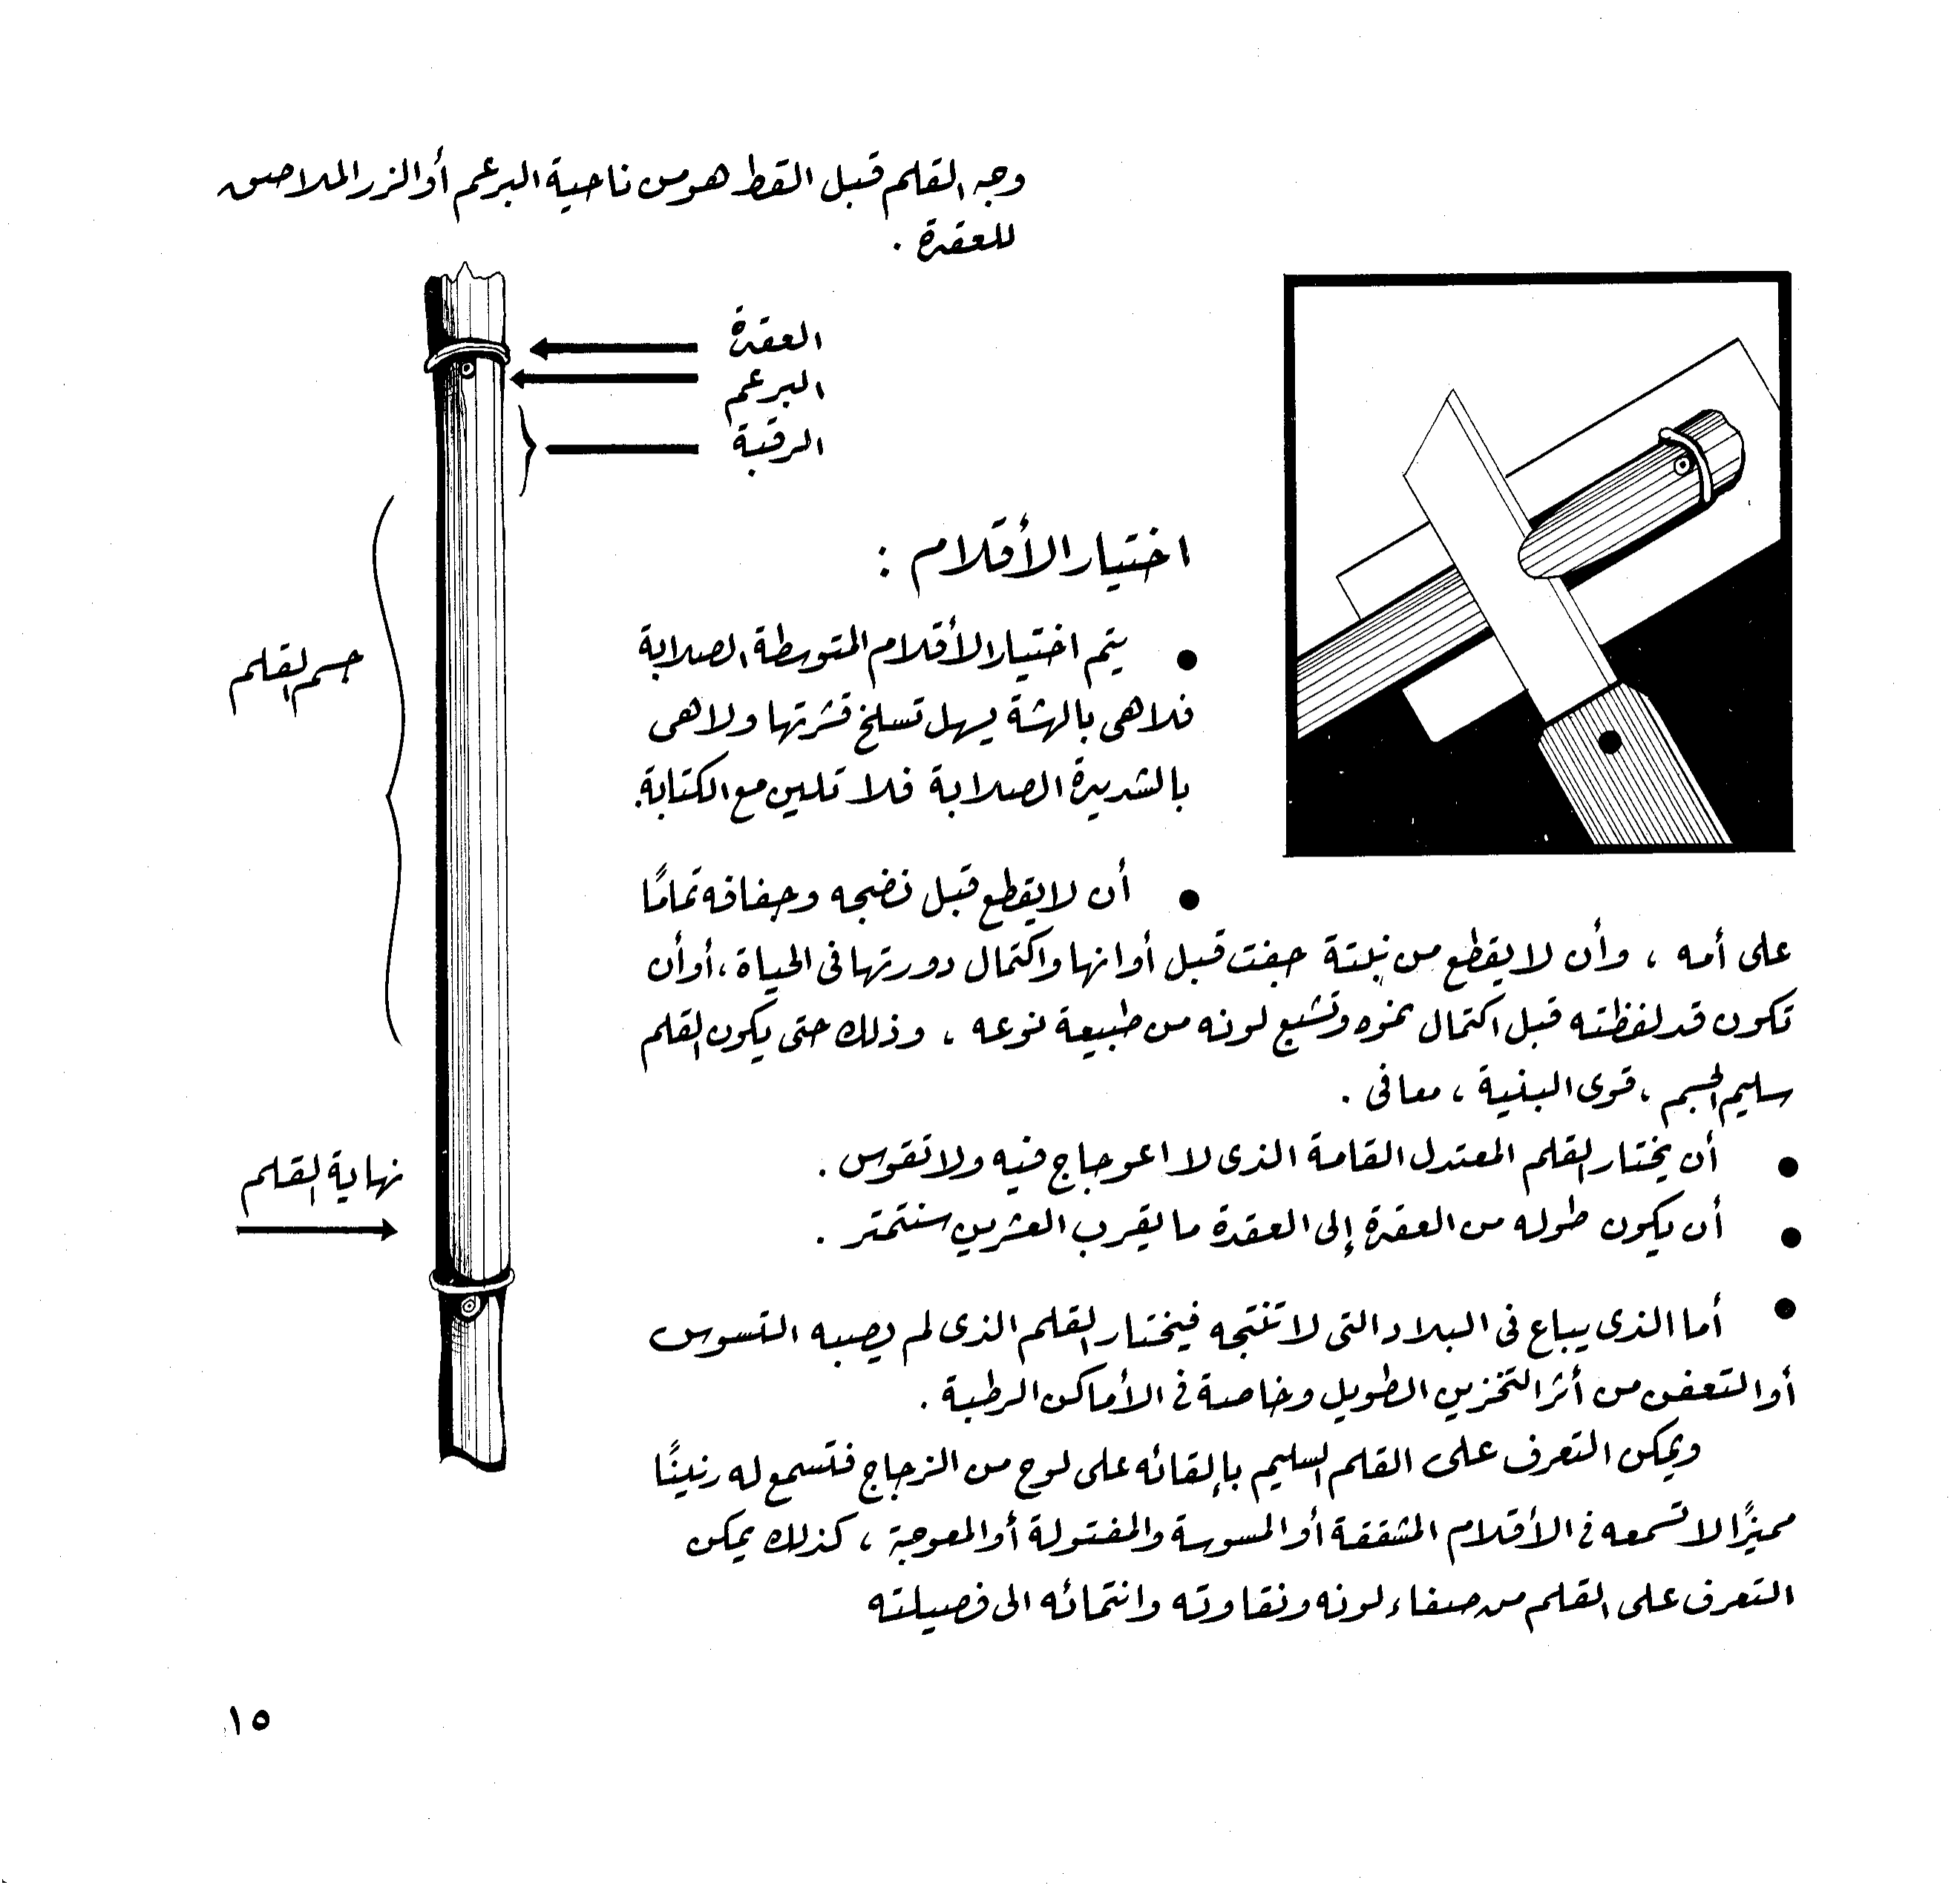 وجه القلم قبل القط هو من ناحية البرعم أو الزر الملاصق
للعقدة .
العقدة
البرعم
الرقبة
جسم القلم
نهاية القلم
اختيار الأقلام :
● يتم اختيار الأقلام المتوسطة الصلابة
فلا هى بالهشة يسهل تسلخ قشرتها ولا هى
بالشديدة الصلابة فلا تلين مع الكتابة.
● أن لا يقطع قبل نضجه وجفافه تمامًا
على أمه ، وأن لا يقطع من نبتة جفت قبل أوانها واكتمال دورتها فى الحياة ، أو أن
تكون قد لفظته قبل اكتمال نموه وتشبع لونه من طبيعة نوعه ، وذلك حتى يكون القلم
سليم الجسم ، قوى البنية ، معافى .
● أن يختار القلم المعتدل القامة الذى لا اعوجاج فيه ولا تقوس .
● أن يكون طوله من العقدة إلى العقدة ما يقرب العشرين سنتمتر .
● أما الذى يباع فى البلاد التى لا تنتجه فيختار القلم الذى لم يصبه التسوس
أو التعفن من أثر التخزين الطويل وخاصة فى الأماكن الرطبة .
ويمكن التعرف على القلم السليم بإلقائه على لوح من الزجاج فتسمع له رنينًا
مميزًا لا تسمعه فى الأقلام المشققة أو المسوسة والمفتولة أو المعوجة ، كذلك يمكن
التعرف على القلم من صفاء لونه ونقاوته وانتمائه الى فصيلته
١٥